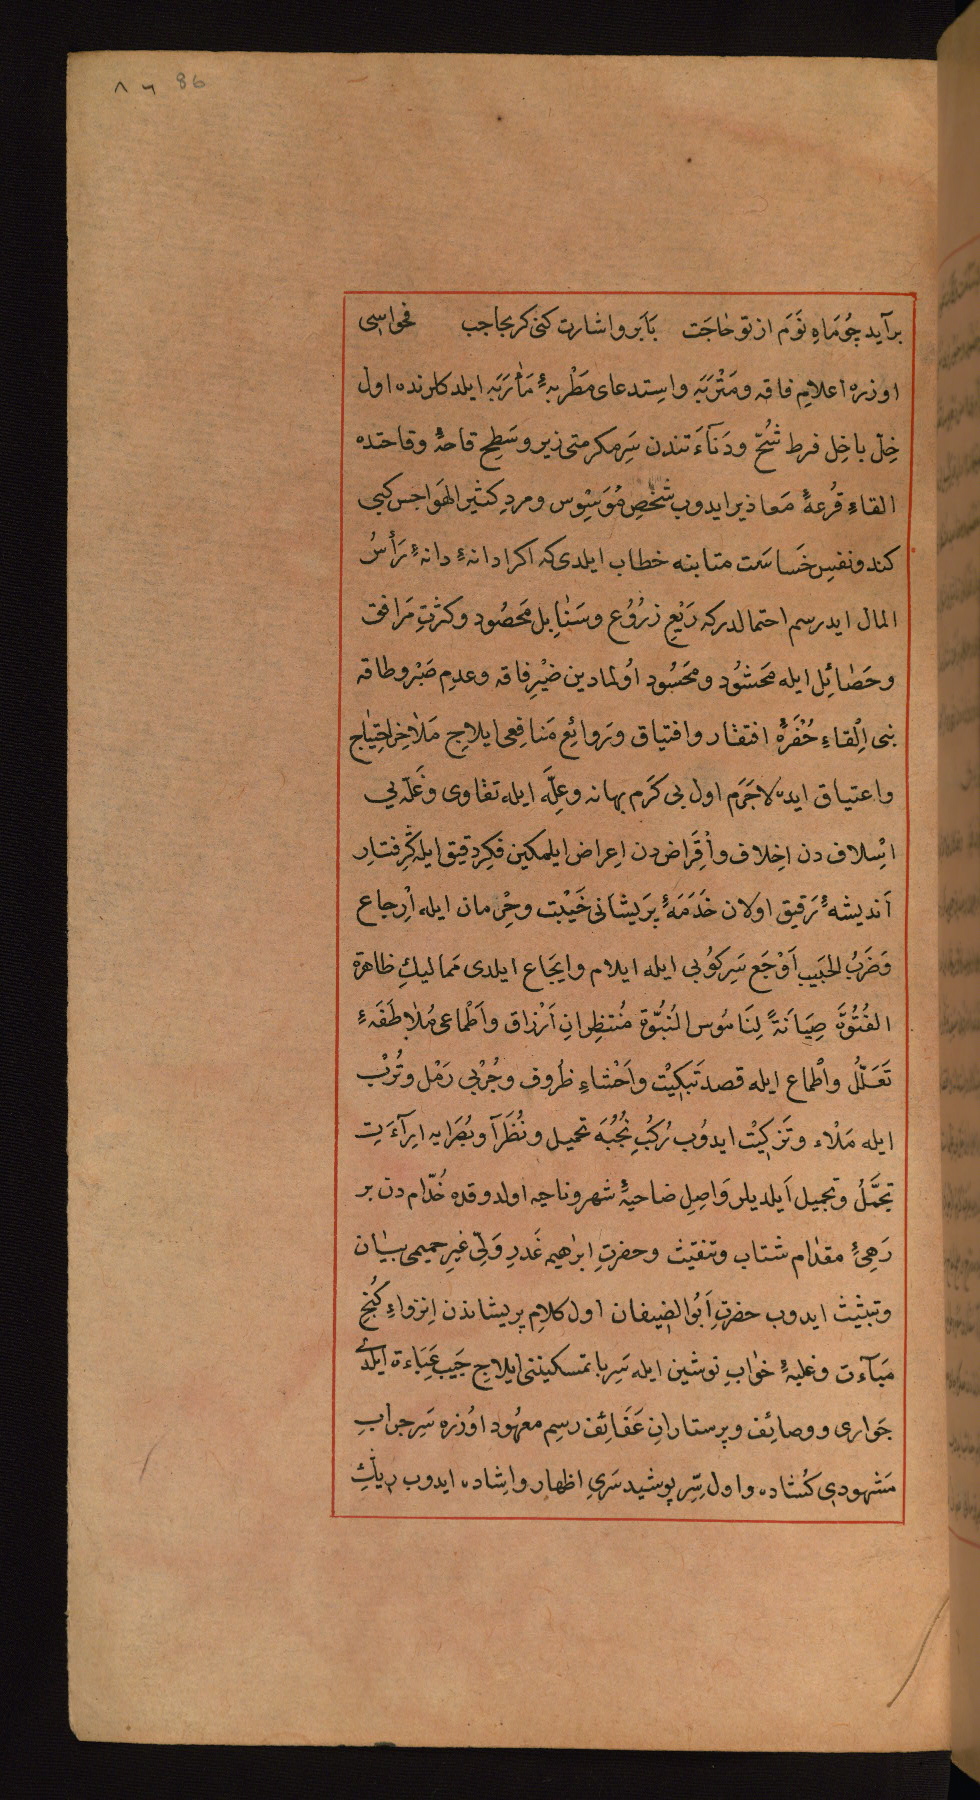 ٨٦ 86
برآید چُو مَاهِ نَوَم از تو حَاجَت بَابَرو اشارت کنی کر بحاجب فحواسی
اوزره اعلامِ فاقه و مَتْرَبَه و استدعای مَطْرِبهٔ مَأرَبَه ایلدکلرنده اول
خِلّ باخِل فرط شُحّ و دَنآءَتندن سَرِ مکرمتی زیر و سَطِح قاحهٔ و قاحتده
القاءِ قُرعهٔ مَعاذیر ایدوب شخصِ مُوَسْوِس و مردِ کثیر الهَواجس کبی
کندو نفسِ خَساسَت متابنه خطاب ایلدی که اکرا دانهٔ دانهٔ رَأسُ
المال ایدرسم احتمالدرکه رَیْعِ زُرُوُع و سَنَابِل مَحصُود و کثرتِ مَرافق
و حَصٰائِل ایله مَحشُود و محسُود اوُلمادین ضَیْرِ فاقه و عدمِ صَبْر و طاقه
بنی اِلْقاءِ حُفرَهٔ افتقار و افتیاق و رَوائعِ مَناقعی ایلاجِ مَدَاخِر احتِیَاج
و اعتیاق ایده لاجَرَم اول بی کَرَم بهانه و عِلَّه ایله تقاوی و غَلّه یی
اسْلاف دن اخِلاف و اِقْرَاض دن اعِراض ایلمکین فکِر دقیق ایله گرِفتارِ
اَندیشهٔ رَقیق اولان خَدَمَهٔ پریشانی خَیْبت و حِرْمان ایله اْرجاع
وَضَرْبُ الحَبیب اَوْجَع سَرکُوبی ایله ایلام و ایجَاع ایلدی مَمالیكِ ظاهرة
الفُتُوَّة صِیَانَةً لِنَامُوس النُبُوّة مُنتظِرانِ اَرْزاق و اَطْماعی مُلاطَفَهٔ
تَعَلُّل و اْطماع ایله قصد تَبکِیْت و اَحْشاءِ ظروف و جُرْبی رَمْل و تُربْ
ایله مَلْاء و تَزکِیْت ایدوُب رُکَبِ نُجُبَه تحمیل و نُظَرآ و بُصَرایه ارِآءَت
تَجَمُّلُ و تجمیل اَیلدیلر وَاصِلِ ضاحیهٔ شهر و ناحیه اولدوقده خُدّام دن بر
رَهِیٔ مقدٰام شتاب و تنقیث و حضرتِ ابرٰهیمه غَدرِ وَلِیّ غیرِ حمیمی بیَان
و تبثیث ایدوب حضرتِ اَبُو الضیفان اول کلامِ پریشاندن اِنزواءِ کُنجِ
مَبآءت و غلبهٔ خوٰابِ نوشین ایله سَرِ با تمسکینتی ایلاجِ جَیبِ عَبَاءة ایلدی
جَواری و وصائِف و پرستارانِ عَفَائِف رسِم معهُود اوُزره سَرِ جرابِ
مَشهودی کُشاده و اول سِّرِ پوشید سَرِی اظهار و اشِاده ایدوب ریكِ